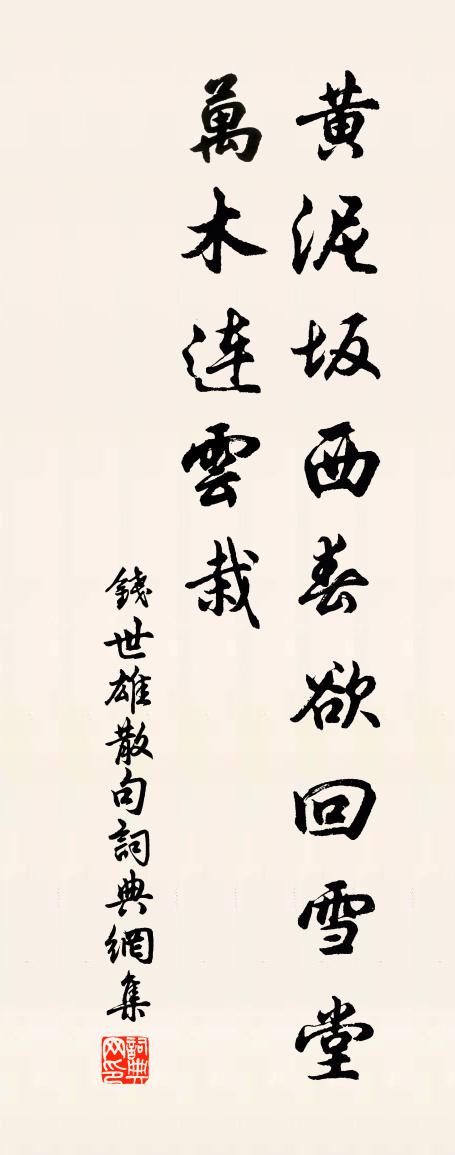 黄泥坂西春欲回雪堂
萬木連雲栽
錢世雄散句詞典網集
詞典网印